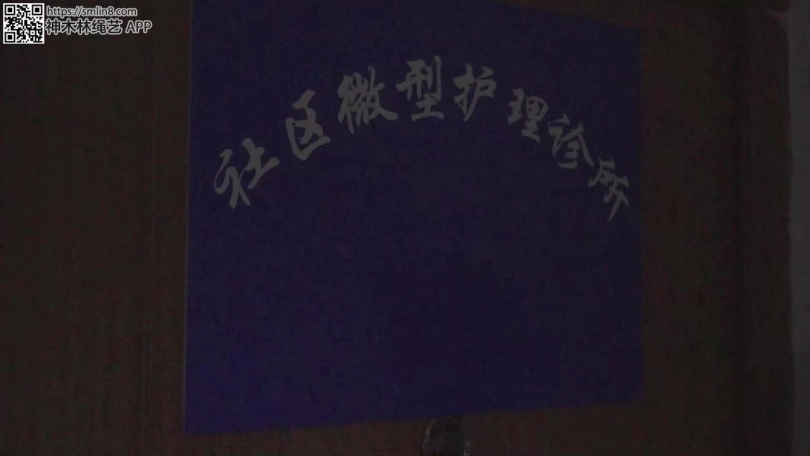 https://smlin8.com
神木林绳艺 APP
社区微型护理诊所